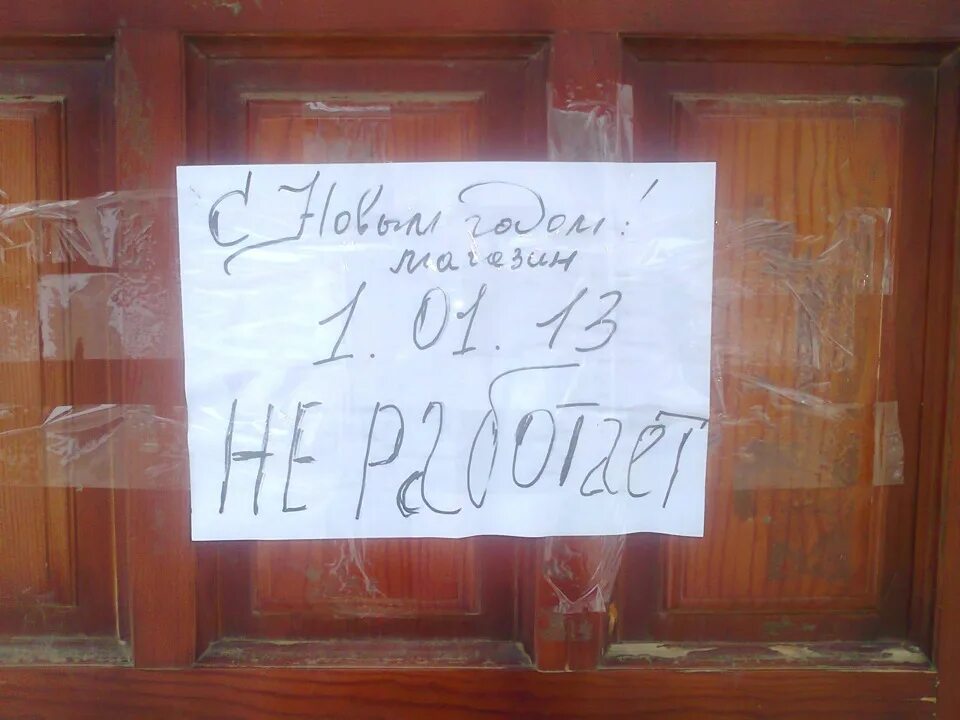 С Новым годом!
магазин
1. 01. 13
НЕ работает